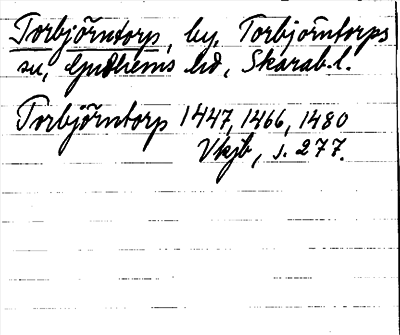 Torbjörntorp, by, Torbjörntorps
sn, Gudhems hd, Skarab.l.
Torbjörntorp 1447, 1466, 1480
Vkjb, s. 277.